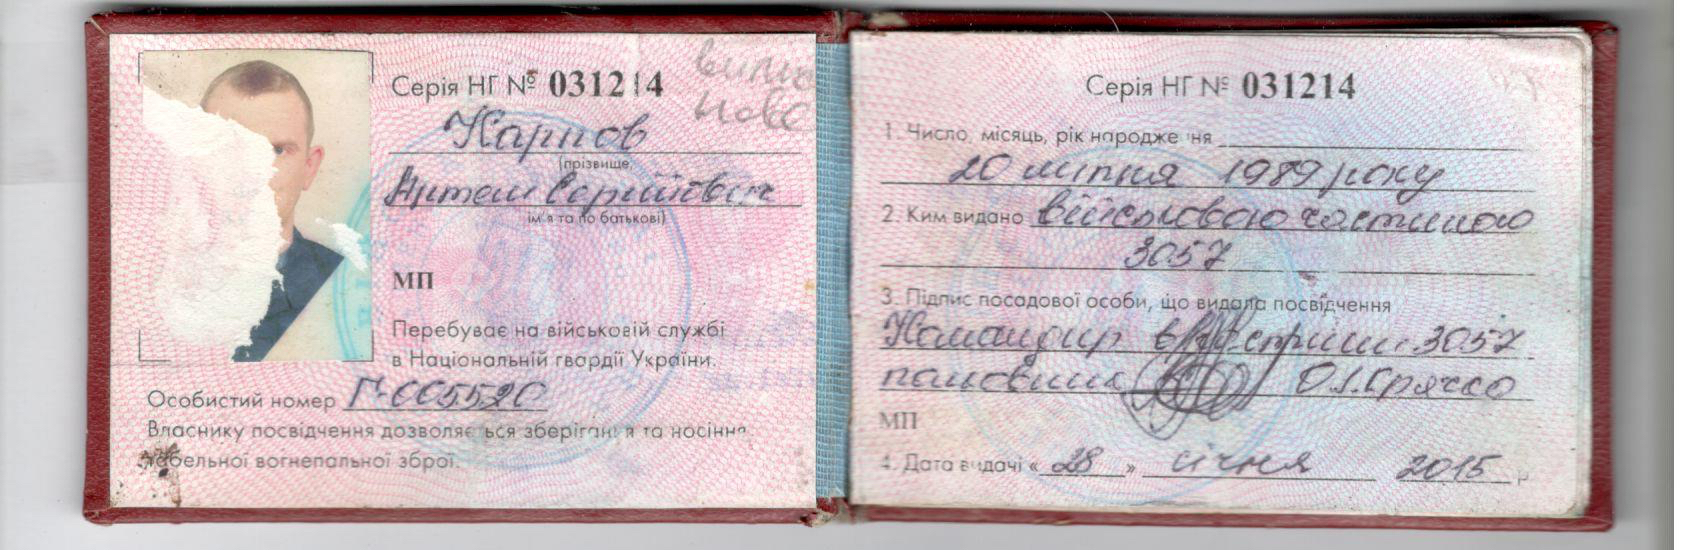 Серія НГ № 031214
Карпов
(прізвище,
Артем Сергійович
ім'я та по батькові)
МП
Перебуває на військовій службі
в Національній гвардії України.
Особистий номер Г-005520
Власнику посвідчення дозволяється зберігання та носіння
табельної вогнепальної зброї.
Серія НГ № 031214
1. Число, місяць, рік народження
20 липня 1989 року
2. Ким видано військовою частиною
3057
3. Підпис посадової особи, що видала посвідчення
Командир 3057
полковник
МП
4. Дата видачі « 28 » січня 2015 р